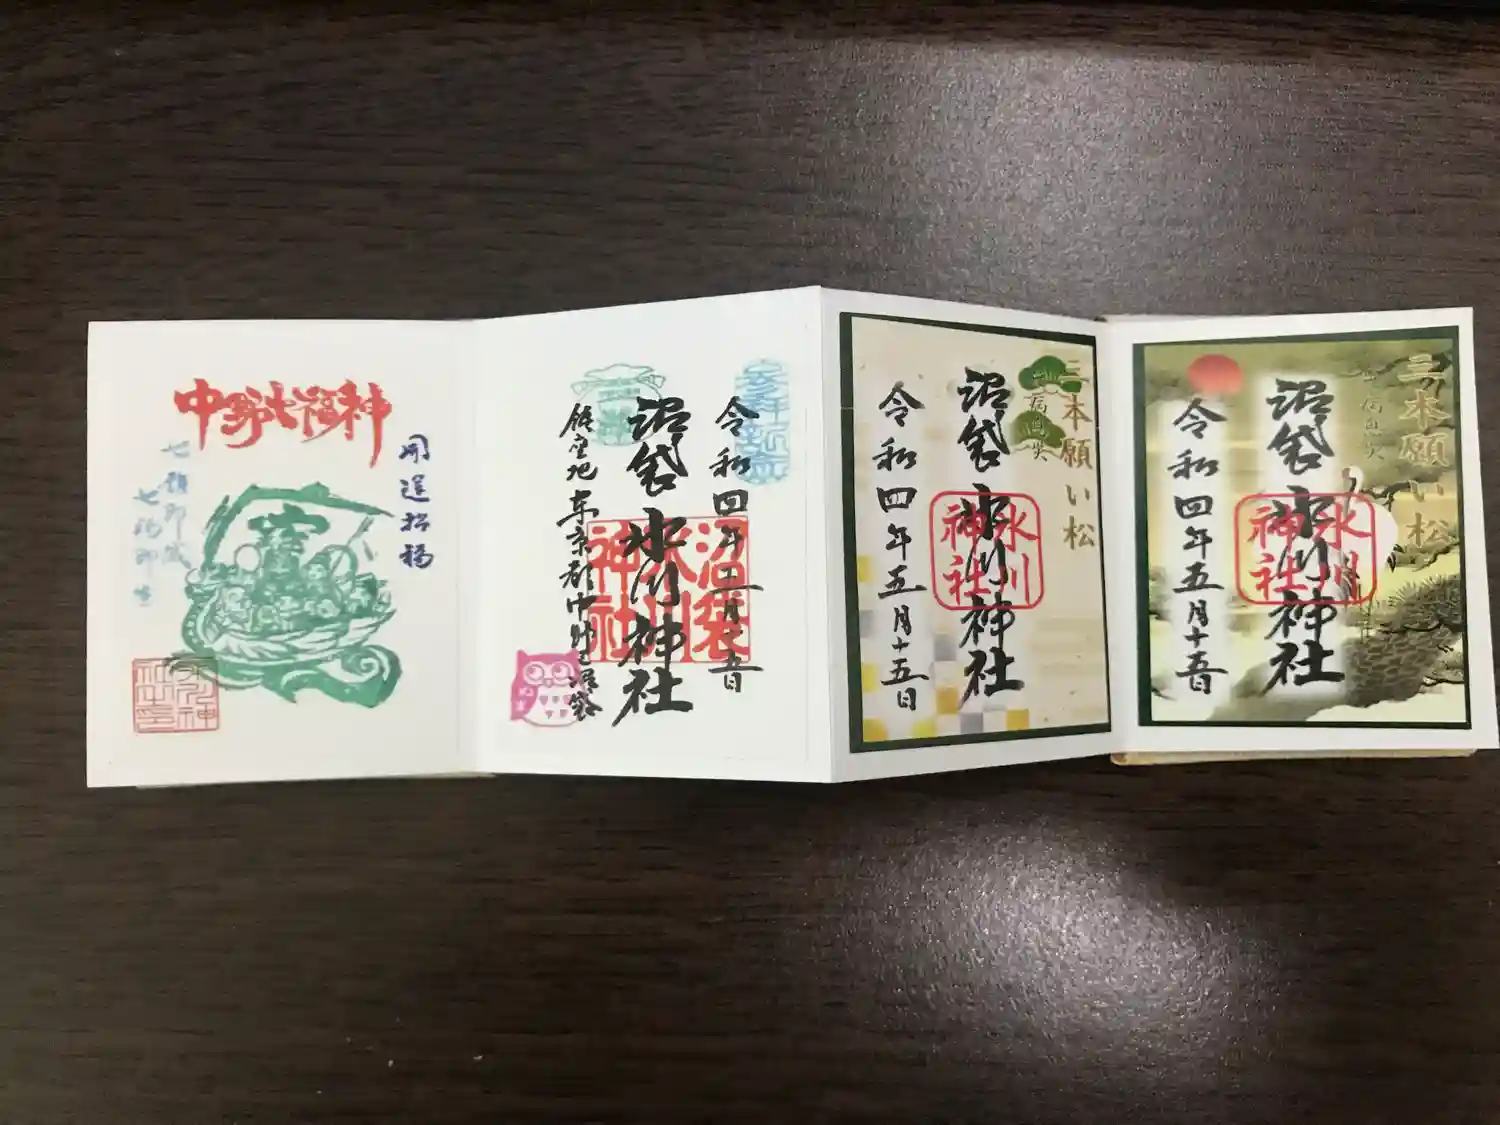 中野七福神
開運招福
七難即滅
七福即生
令和四年五月十五日
沼袋 氷川神社
沼袋
氷川
神社
鎮座地 東京都中野区沼袋
三本願い松
沼袋 氷川神社
氷川
神社
令和四年五月十五日
三本願い松
沼袋 氷川神社
氷川
神社
令和四年五月十五日